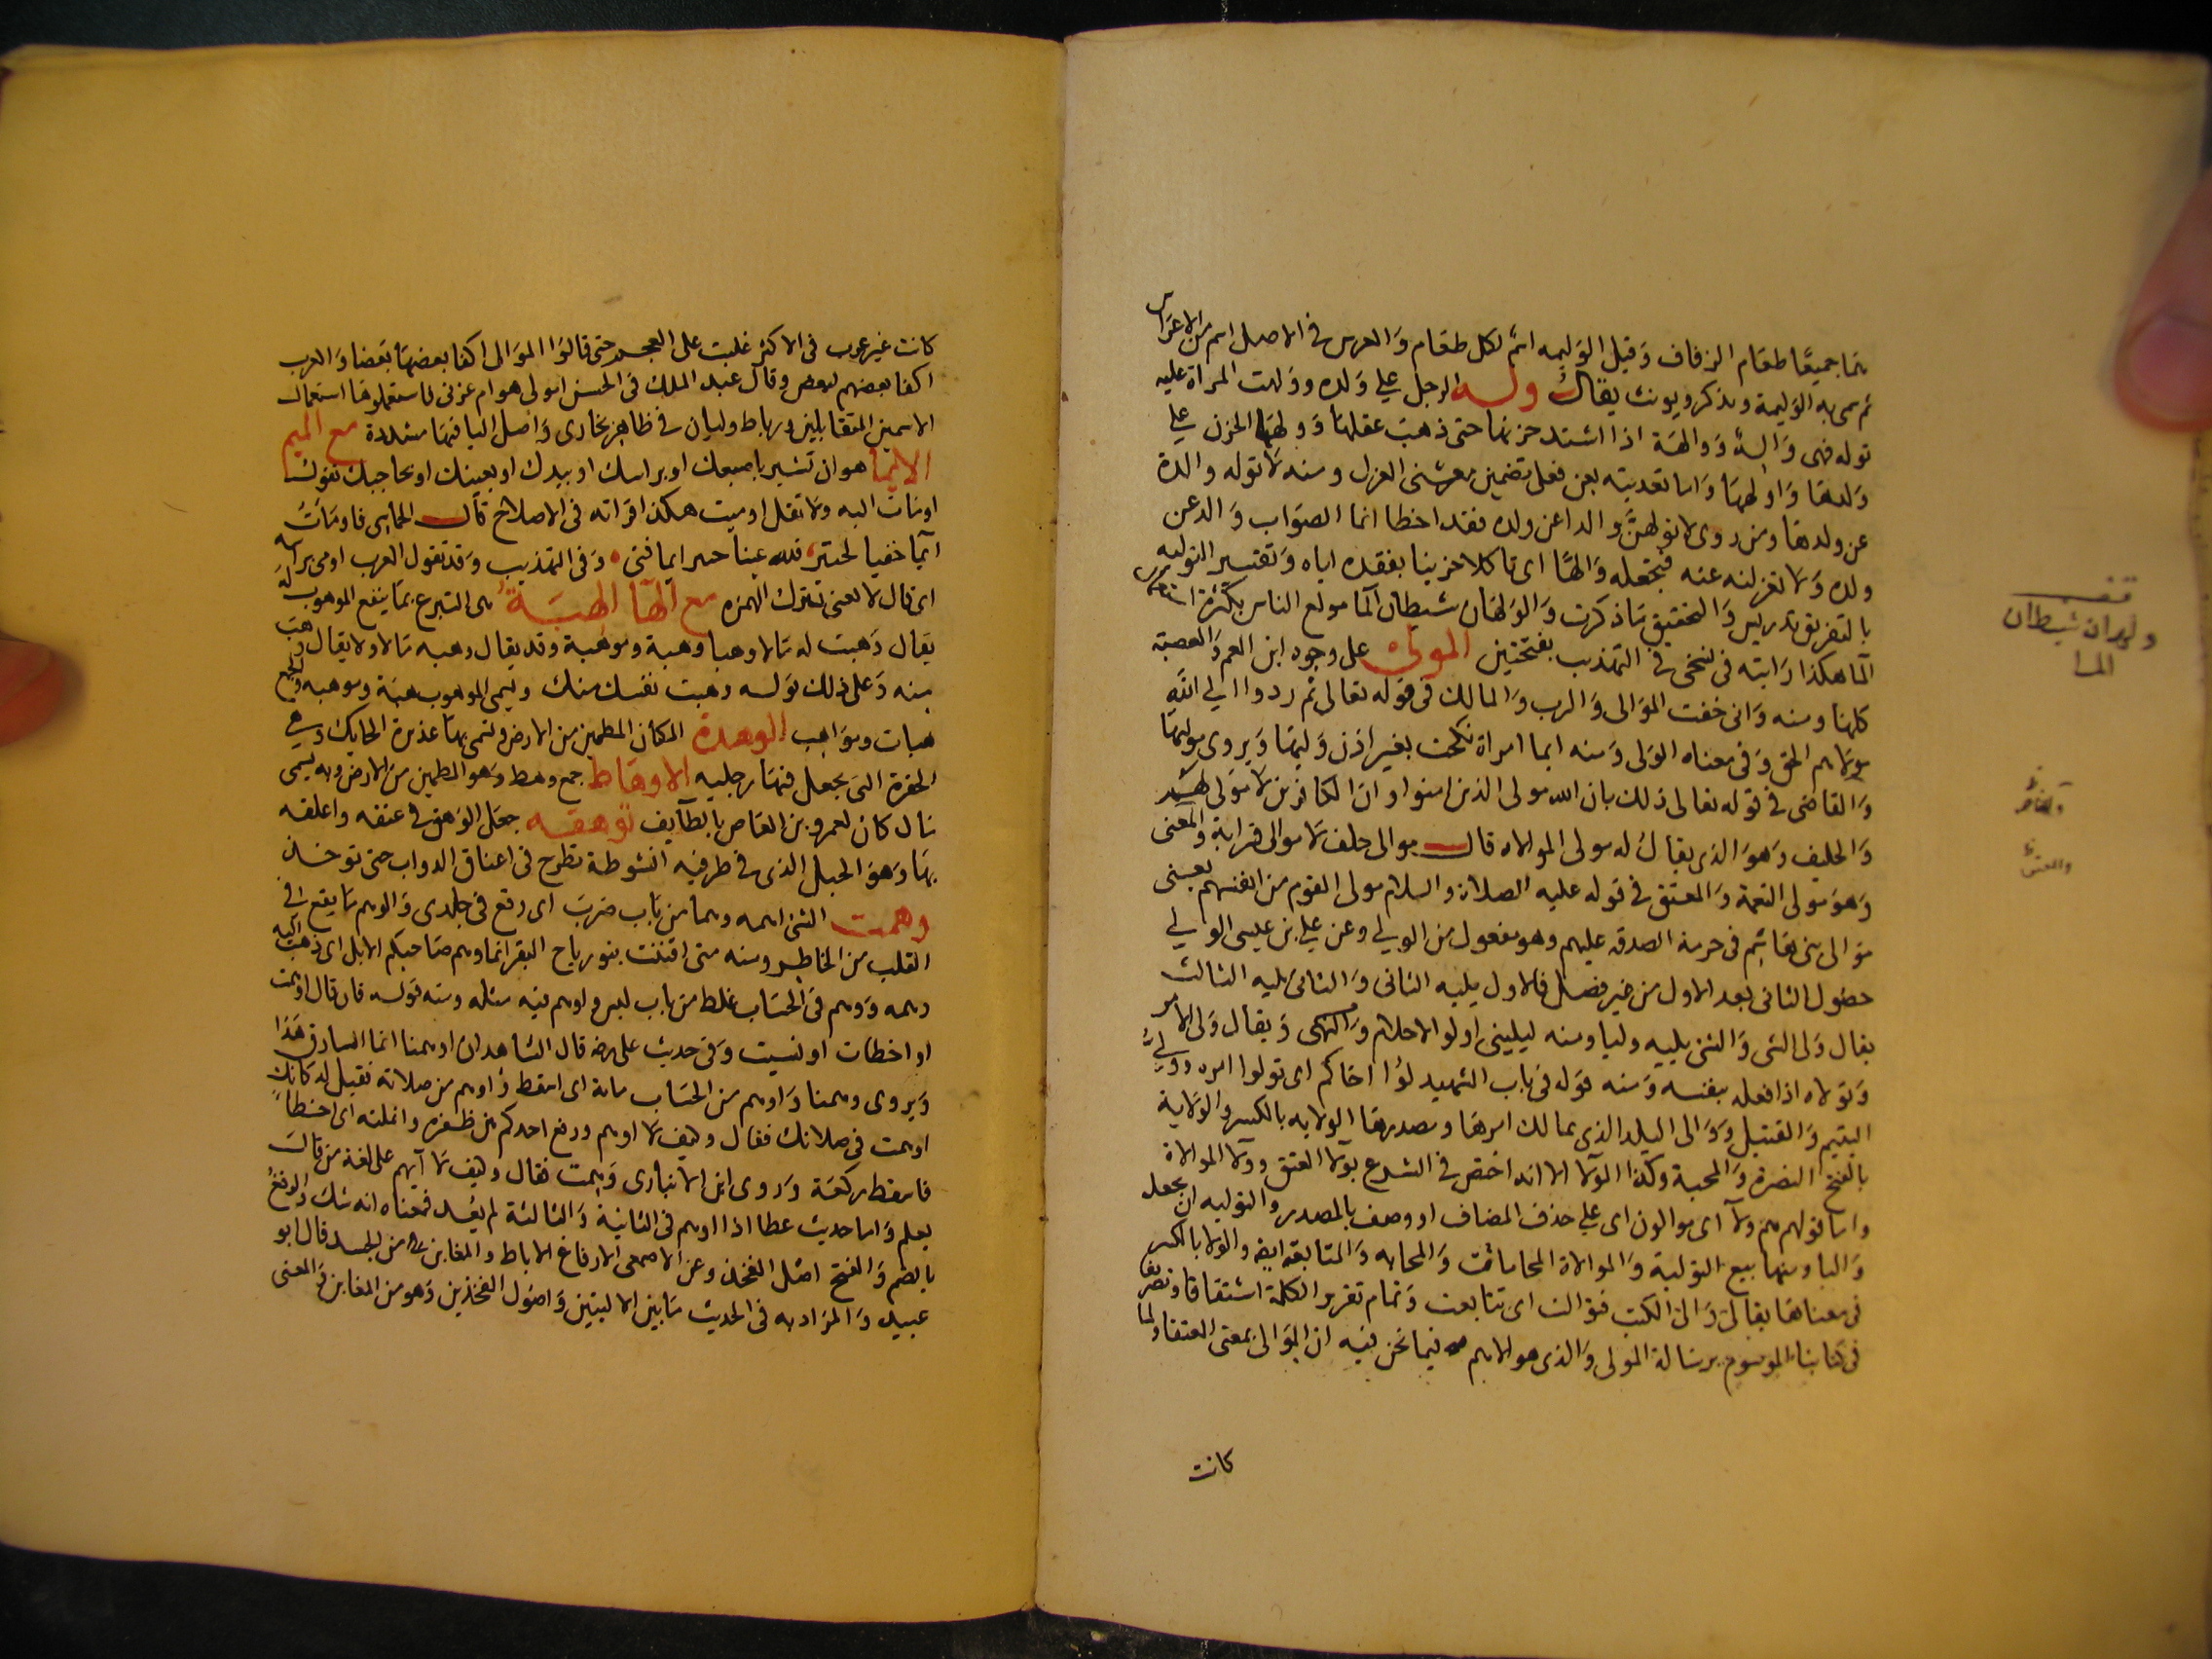 بهما جميعًا طعام الزفاف وَقيل الوَليمه اسم لكل طعَام وَالعرس في الاصل اسم من الاعرَاس
ثم سمى به الوَليمة ويذكر ويونث يقال وله الرجل على وَلده وَولهت المراة عليه
توله فهى وَالهٌ وَوالهَة اذا اشتد حزنها حتى ذهبَ عقلهَا وَولهَهَا الحزن على
وَلدهَا وَاولههَا وَاما تعديته بعن فعلى تضمين معنى العزل ومنه لَا توله والدة
عن ولدهَا ومن روى لا تولهنَّ والدا عن ولده فقد اخطا انما الصوَاب وَالد عن
ولده وَلا تعزلنه عنه فتجعله وَالهًا اى ثاكلا حزينا بفقده اياه وَتفسير التوليه
بالتفريق تدريس وَالتحقيق مَا ذكرت وَالوَلهَان شيطان المَا مولع الناس بكثرة استعمال
الما هكذا رَايته في نسختى في التهذيب بفتحتين المولى على وجوه ابن العم وَالعصبة
كلها ومنه وَانى خفت الموَالى وَالرب وَالمالك في قوله تعالى ثم ردوا الى الله
مولاهم الحق وَفي معناه الوَلى وَمنه ايما امراة نكحت بغير اذن وَليها وَيروى موليهَا
وَالقاضى في قوله تعالى ذلك بان الله مولى الذين امنوا وان الكافرين لا موَلى لهم
وَالحليف وَهوَ الذى يقال له مولى الموالاه قال موالى حلف لا موالى قرابة وَالمعنى
وَهوَ مَولى النعمة وَالمعتق في قوله عليه الصلاة والسلام مولى القوم من انفسهم يعنى
موَالى بنى هَاشم في حرمة الصدقه عليهم وهو مفعول من الولى وعن على بن عيسى الولى
حصول الثانى بعد الاول من غير فصل فالاول يليه الثانى وَالثانى يليه الثالث
يقال وَلى الشى وَالشى يليه وليا ومنه ليلينى اولو الاحلام وَالنهى وَيقال وَلى الامر
وَتولاه اذا فعله بنفسه وَمنه قوَله في بَاب الشهيد لوُا اخاكم اى تولوا امره وولى
اليتيم وَالقتيل وَوَالى البلد الذى مالك امرهَا ومصدرهَا الولايه بالكسر والوَلاية
بالفتح النصرة وَالمحبة وكذا الوَلا الا انه اختص في الشرع بوَلا العتق وولا الموالاة
واما قولهم هم ولَا اى موالون اى على حذف المضاف او وصف بالمصدر والتوليه ان يجعل
وَاليا ومنها بيع التولية وَالموالاة المحاماة وَالمحابه وَالمتابعه ايضه والوَلا بالكسر
في معناهَا يقال وَالى الكتب فتوالت اى تتابعت وَتمام تقرير الكلمة اشتقاقا وتصريفا
في كتابنا الموسوم برسَالة المولى وَالذى هو الاهم فيما نحن فيه ان الموَالى بمعنى العتقا ولما
كانت
قف
ولهان شيطان
الما
كانت غير عرب في الاكثر غلبت على العجم حتى قالوا الموَالى اكفا بعضهَا بعَضا وَالعرب
اكفا بعضهم لبعض وقال عبد الملك في الحسن امولى هو ام عربى لما ستعملوهَا استعمال
الاسمين المتقابلين وربَاط وليان في ظاهر بخارى وَاصل اليا فيهَا مشددة مع الميم
الايما هو ان تشير باصبعك او براسك او بيدك او بعينك او بحاجبك تقوَل
اومَات اليه وَلا تقل اوميت هكذا قراته في الاصلاح قال الحماسى فاومَاتُ
ايمَا خفيا لحبتر فلله عينا حبتر ايما فتى وَفي التهذيب وَقد تقول العرب اومى براسه
اى قال لا لعنى بترك الهمزه مع الهَا الهِبَةُ هى التبرع بما ينفع الموهوب لَهُ
يقَال وَهبت له مَالا وهبا وهبة وموهبة وقد يقال وهبه مَالا ولا يقال وهبَ
منه وَعلى ذلك قوَله وهبت نفسك منك ويسمى الموهوب هبَة وموهبه وَالجمع
هبات وموَاهب الوهدة المكان المطمين من الارض ولتمى بهَا عذرة الحايك وَهى
الحفرة التى يجعل فيهَا رجليه الاوهَاط جمع وهط وَهو المطمين من الارض وبه يسمى
مَال كان لعمرو بن العَاص بالطايف توَهقه جعَل الوَهق في عنقه واعلقه
بهَا وَهوَ الحبل الذى في طرفيه انشوطة تطرح في اعناق الدواب حتى توخذ
وهمت الشى اهمه وهما من بَاب ضربَ اى وقع في خلدى وَالوهم مَا يقع في
القلب من الخاطر ومنه متى اقتنت بنو رياح البقر انما وهم صَاحبكم الابل اى ذهَب اليه
وهمه وَوهم في الحسَاب غلط من باب لبس واوهم فيه مثله ومنه قوله فان قال اوهمت
او اخطات او نسيت وَفي حديث على رضه قال الشاهدان اوهمنا انما السارق هَذا
وَيروى وهمنا وَاوهم من الحسَاب مائة اى اسقط وَاوهم من صلاته فقيل له كانك
اوهمت في صلاتك فقال وكيف لا اوهم ورفغ احدكم بين ظفره وانملته اى اخطاَ
فاسقط ركعَة وَروى ابن الانبارى وَهمت فقال وكيف لا ايهم على لغة من قال
يعلم وَاما حديث عطا اذا اوهم في الثانية وَالثالثة لم يعُد فمعناه انه شك وَالرفغُ
بالضم وَالفتح اصل الفخذ وعن الاصمعى الارفاغ الاباط والمغابن من الجسد قال ابو
عبيد وَالمرَاد به في الحديث مَا بين الاليتين وَاصول الفخذين وَهو من المغابن وَالمعنى